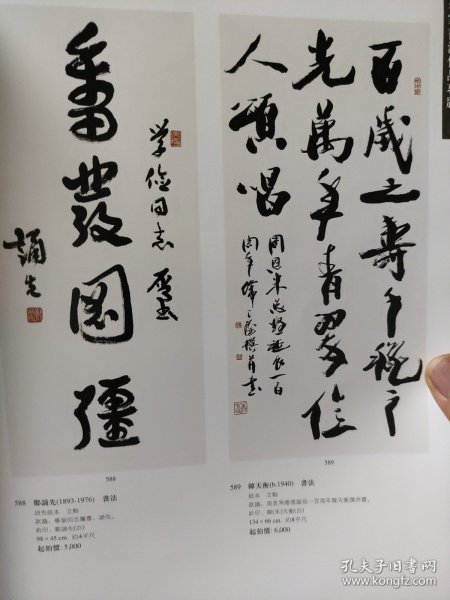 奮發圖彊
學儉同志 屬書
誦先
588
百歲之壽千秨之
光萬年青鄧公信
人頌唱
周恩來總理誕辰一百
周年韓天衡撰并書
589
588 鄭誦先(1893-1976) 書法
設色紙本 立軸
款識:學儉同志屬書,誦先。
鈐印:鄭誦先(白)
98×45 cm. 約4平尺
起拍價: 5,000
589 韓天衡(b.1940) 書法
紙本 立軸
款識:周恩來總理誕辰一百周年韓天衡撰并書。
鈐印:韓(朱)天衡(白)
134×66 cm. 約8平尺
起拍價: 6,000
孔夫子旧书网